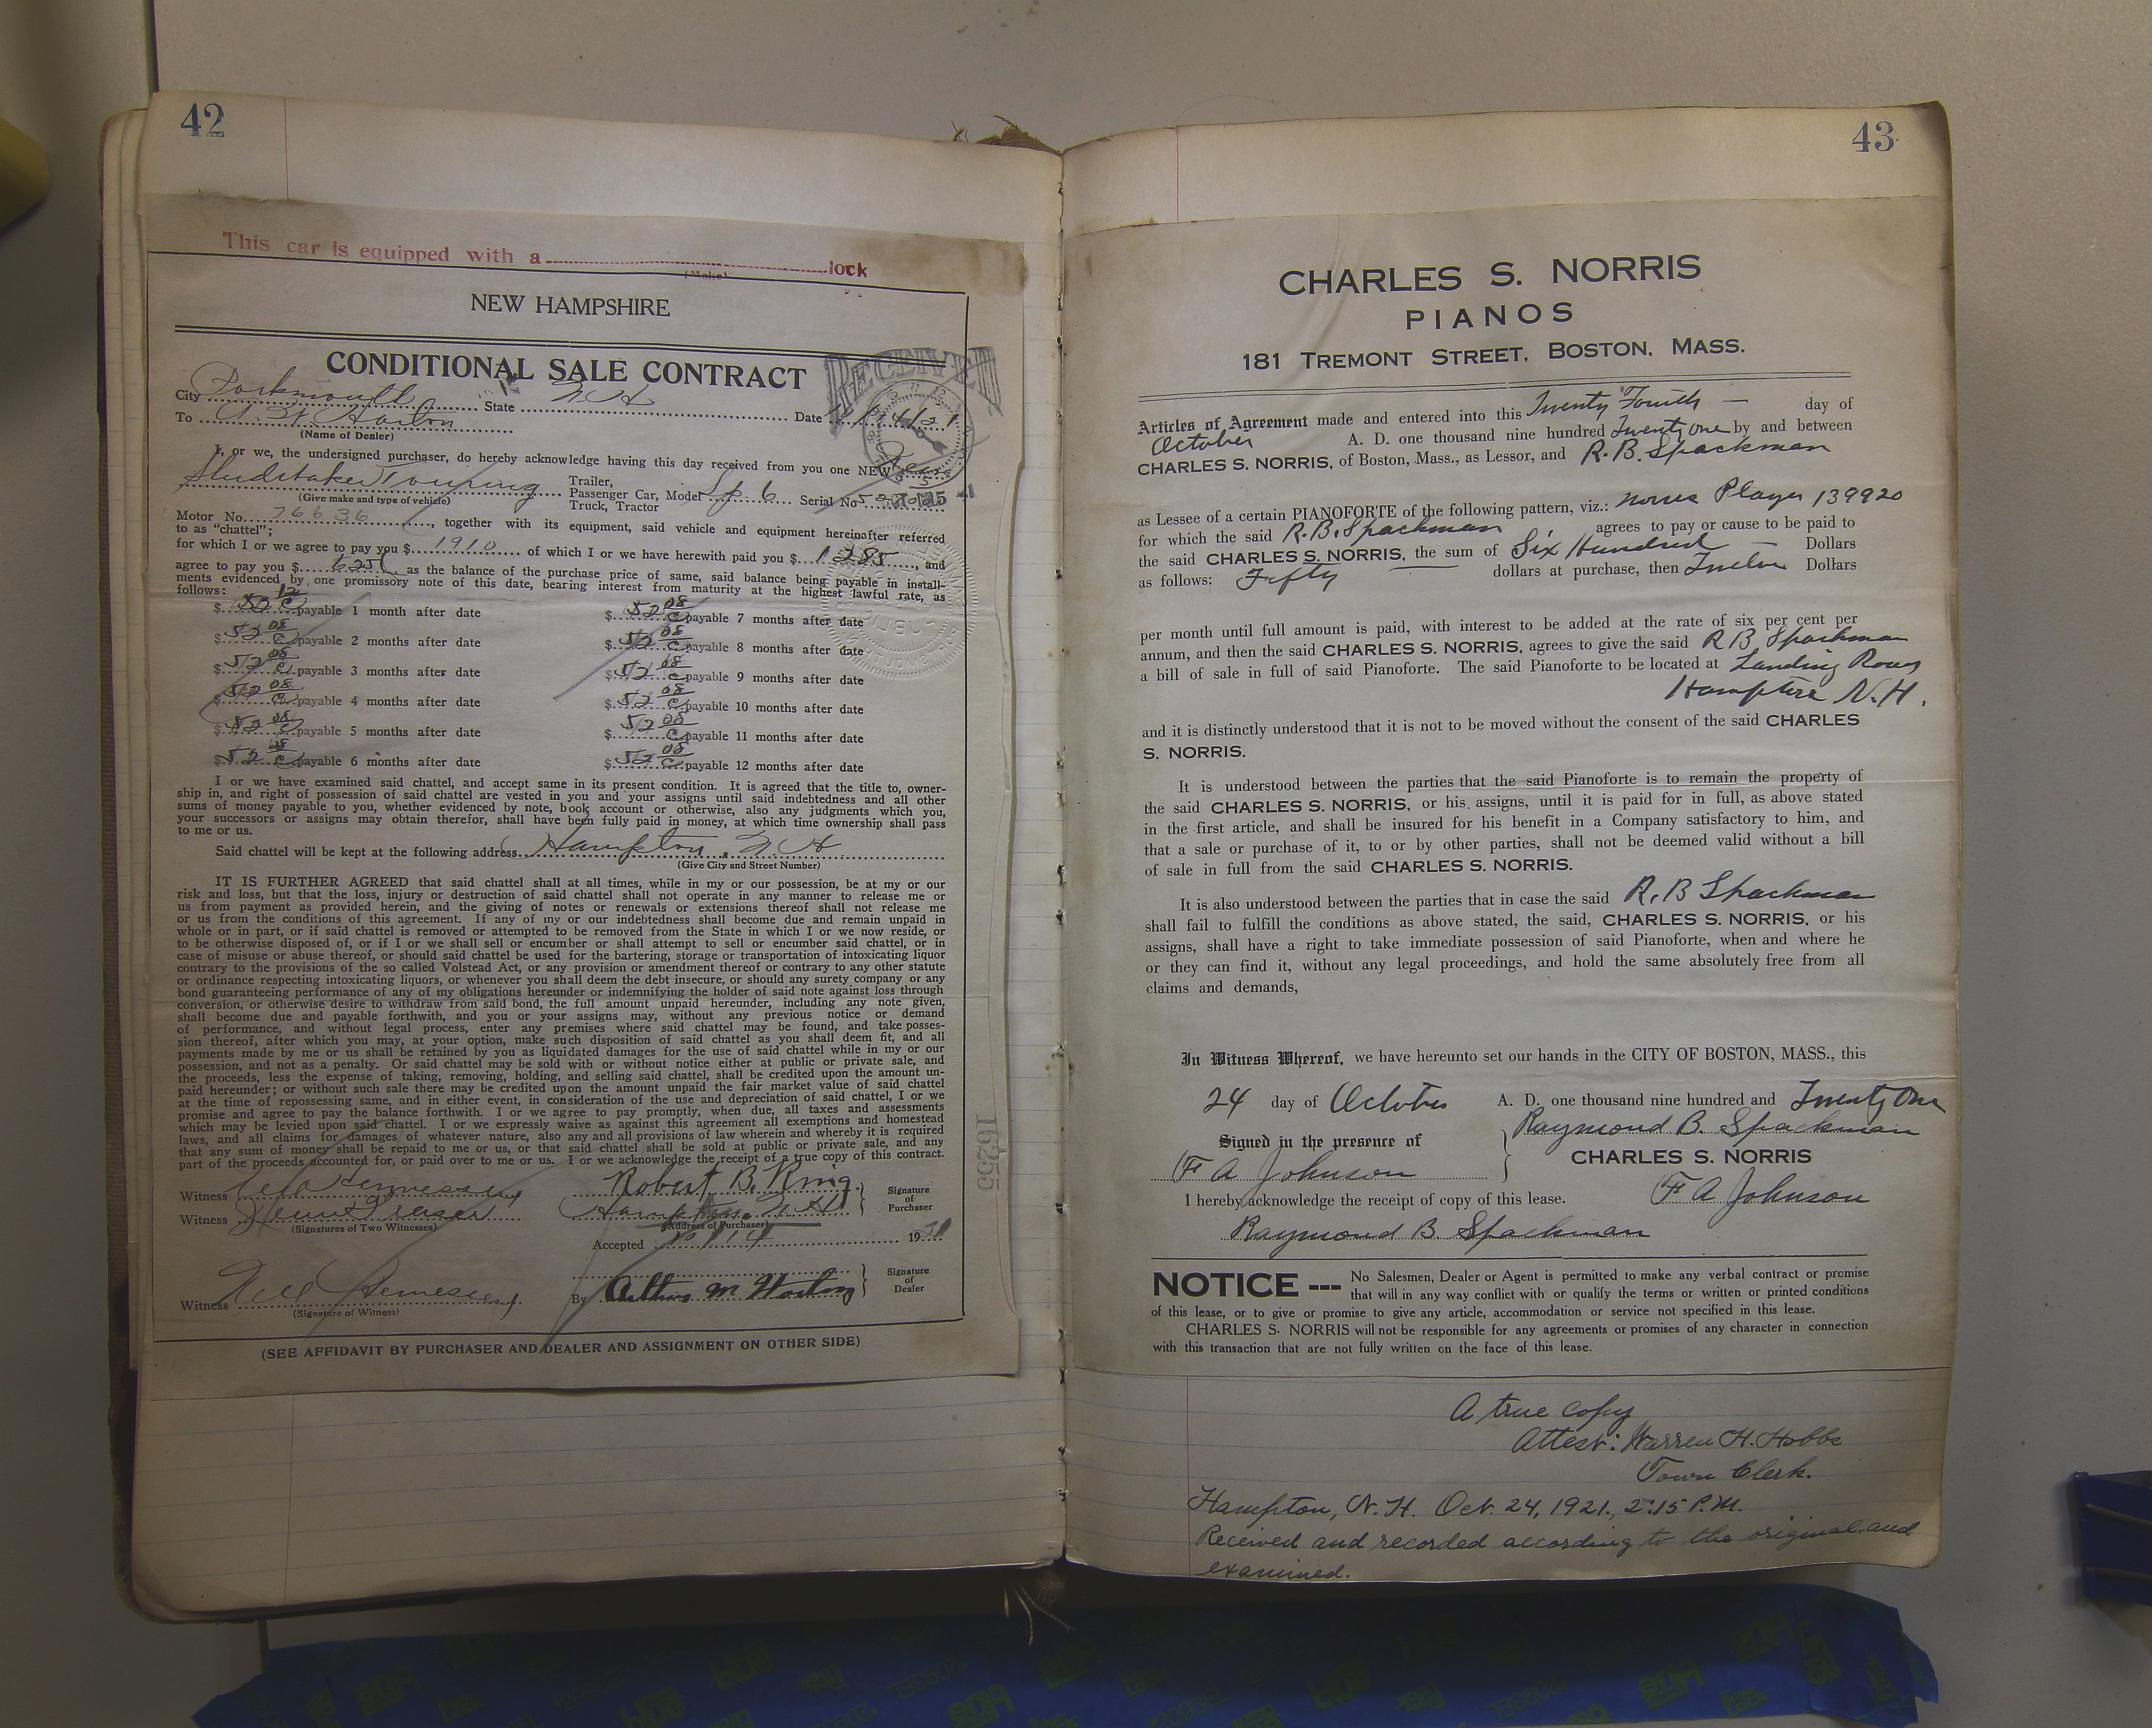 42
This car is equipped with a lock
(Make)
NEW HAMPSHIRE
CONDITIONAL SALE CONTRACT
RECEIVED
City Portsmouth State N H Date
To
(Name of Dealer)
I, or we, the undersigned purchaser, do hereby acknowledge having this day received from you one NEW
Studebaker Touring
Trailer,
Passenger Car, Model Sp. 6 Serial No
Truck, Tractor
(Give make and type of vehicle)
Motor No. 76636, together with its equipment, said vehicle and equipment hereinafter referred
to as "chattel";
for which I or we agree to pay you $ 1910 of which I or we have herewith paid you $ 1285, and
agree to pay you $ 625 as the balance of the purchase price of same, said balance being payable in install-
ments evidenced by one promissory note of this date, bearing interest from maturity at the highest lawful rate, as
follows:
$ payable 1 month after date
$ 52 08 payable 2 months after date
$ 52 08 payable 3 months after date
$ 52 08 payable 4 months after date
$ 52 08 payable 5 months after date
$ 52 08 payable 6 months after date
$ 52 08 payable 7 months after date
$ 52 08 payable 8 months after date
$ 52 08 payable 9 months after date
$ 52 08 payable 10 months after date
$ 52 08 payable 11 months after date
$ 52 08 payable 12 months after date
I or we have examined said chattel, and accept same in its present condition. It is agreed that the title to, owner-
ship in, and right of possession of said chattel are vested in you and your assigns until said indebtedness and all other
sums of money payable to you, whether evidenced by note, book account or otherwise, also any judgments which you,
your successors or assigns may obtain therefor, shall have been fully paid in money, at which time ownership shall pass
to me or us.
Said chattel will be kept at the following address Hampton, N. H.
(Give City and Street Number)
IT IS FURTHER AGREED that said chattel shall at all times, while in my or our possession, be at my or our
risk and loss, but that the loss, injury or destruction of said chattel shall not operate in any manner to release me or
us from payment as provided herein, and the giving of notes or renewals or extensions thereof shall not release me
or us from the conditions of this agreement. If any of my or our indebtedness shall become due and remain unpaid in
whole or in part, or if said chattel is removed or attempted to be removed from the State in which I or we now reside, or
to be otherwise disposed of, or if I or we shall sell or encumber or shall attempt to sell or encumber said chattel, or in
case of misuse or abuse thereof, or should said chattel be used for the bartering, storage or transportation of intoxicating liquor
contrary to the provisions of the so called Volstead Act, or any provision or amendment thereof or contrary to any other statute
or ordinance respecting intoxicating liquors, or whenever you shall deem the debt insecure, or should any surety company or any
bond guaranteeing performance of any of my obligations hereunder or indemnifying the holder of said note against loss through
conversion, or otherwise desire to withdraw from said bond, the full amount unpaid hereunder, including any note given,
shall become due and payable forthwith, and you or your assigns may, without any previous notice or demand
of performance, and without legal process, enter any premises where said chattel may be found, and take posses-
sion thereof, after which you may, at your option, make such disposition of said chattel as you shall deem fit, and all
payments made by me or us shall be retained by you as liquidated damages for the use of said chattel while in my or our
possession, and not as a penalty. Or said chattel may be sold with or without notice either at public or private sale, and
the proceeds, less the expense of taking, removing, holding, and selling said chattel, shall be credited upon the amount un-
paid hereunder; or without such sale there may be credited upon the amount unpaid the fair market value of said chattel
at the time of repossessing same, and in either event, in consideration of the use and depreciation of said chattel, I or we
promise and agree to pay the balance forthwith. I or we agree to pay promptly, when due, all taxes and assessments
which may be levied upon said chattel. I or we expressly waive as against this agreement all exemptions and homestead
laws, and all claims for damages of whatever nature, also any and all provisions of law wherein and whereby it is required
that any sum of money shall be repaid to me or us, or that said chattel shall be sold at public or private sale, and any
part of the proceeds accounted for, or paid over to me or us. I or we acknowledge the receipt of a true copy of this contract.
Witness Robert B. Ring Signature of Purchaser
Witness Hampton N H
(Signatures of Two Witnesses) (Address of Purchaser)
Accepted 19
Witness By Signature of Dealer
(Signature of Witness)
(SEE AFFIDAVIT BY PURCHASER AND DEALER AND ASSIGNMENT ON OTHER SIDE)
16255
43
CHARLES S. NORRIS
PIANOS
181 TREMONT STREET, BOSTON, MASS.
Articles of Agreement made and entered into this Twenty Fourth day of
October A. D. one thousand nine hundred Twenty one by and between
CHARLES S. NORRIS, of Boston, Mass., as Lessor, and R. B. Spackman
as Lessee of a certain PIANOFORTE of the following pattern, viz.: Norris Player 139920
for which the said R. B. Spackman agrees to pay or cause to be paid to
the said CHARLES S. NORRIS, the sum of Six Hundred Dollars
as follows: Fifty dollars at purchase, then Twelve Dollars
per month until full amount is paid, with interest to be added at the rate of six per cent per
annum, and then the said CHARLES S. NORRIS, agrees to give the said R B Spackman
a bill of sale in full of said Pianoforte. The said Pianoforte to be located at Landing Road
N. H.
and it is distinctly understood that it is not to be moved without the consent of the said CHARLES
S. NORRIS.
It is understood between the parties that the said Pianoforte is to remain the property of
the said CHARLES S. NORRIS, or his assigns, until it is paid for in full, as above stated
in the first article, and shall be insured for his benefit in a Company satisfactory to him, and
that a sale or purchase of it, to or by other parties, shall not be deemed valid without a bill
of sale in full from the said CHARLES S. NORRIS.
It is also understood between the parties that in case the said R. B Spackman
shall fail to fulfill the conditions as above stated, the said, CHARLES S. NORRIS, or his
assigns, shall have a right to take immediate possession of said Pianoforte, when and where he
or they can find it, without any legal proceedings, and hold the same absolutely free from all
claims and demands,
In Witness Whereof, we have hereunto set our hands in the CITY OF BOSTON, MASS., this
24 day of October A. D. one thousand nine hundred and Twenty One
Raymond B. Spackman
Signed in the presence of
CHARLES S. NORRIS
F A Johnson
I hereby acknowledge the receipt of copy of this lease. F A Johnson
Raymond B Spackman
NOTICE --- No Salesmen, Dealer or Agent is permitted to make any verbal contract or promise
that will in any way conflict with or qualify the terms or written or printed conditions
of this lease, or to give or promise to give any article, accommodation or service not specified in this lease.
CHARLES S. NORRIS will not be responsible for any agreements or promises of any character in connection
with this transaction that are not fully written on the face of this lease.
A true copy
Attest: Warren H. Hobbs
Town Clerk.
Hampton, N. H. Oct. 24, 1921, 2:15 P.M.
Received and recorded according to the original, and
examined.